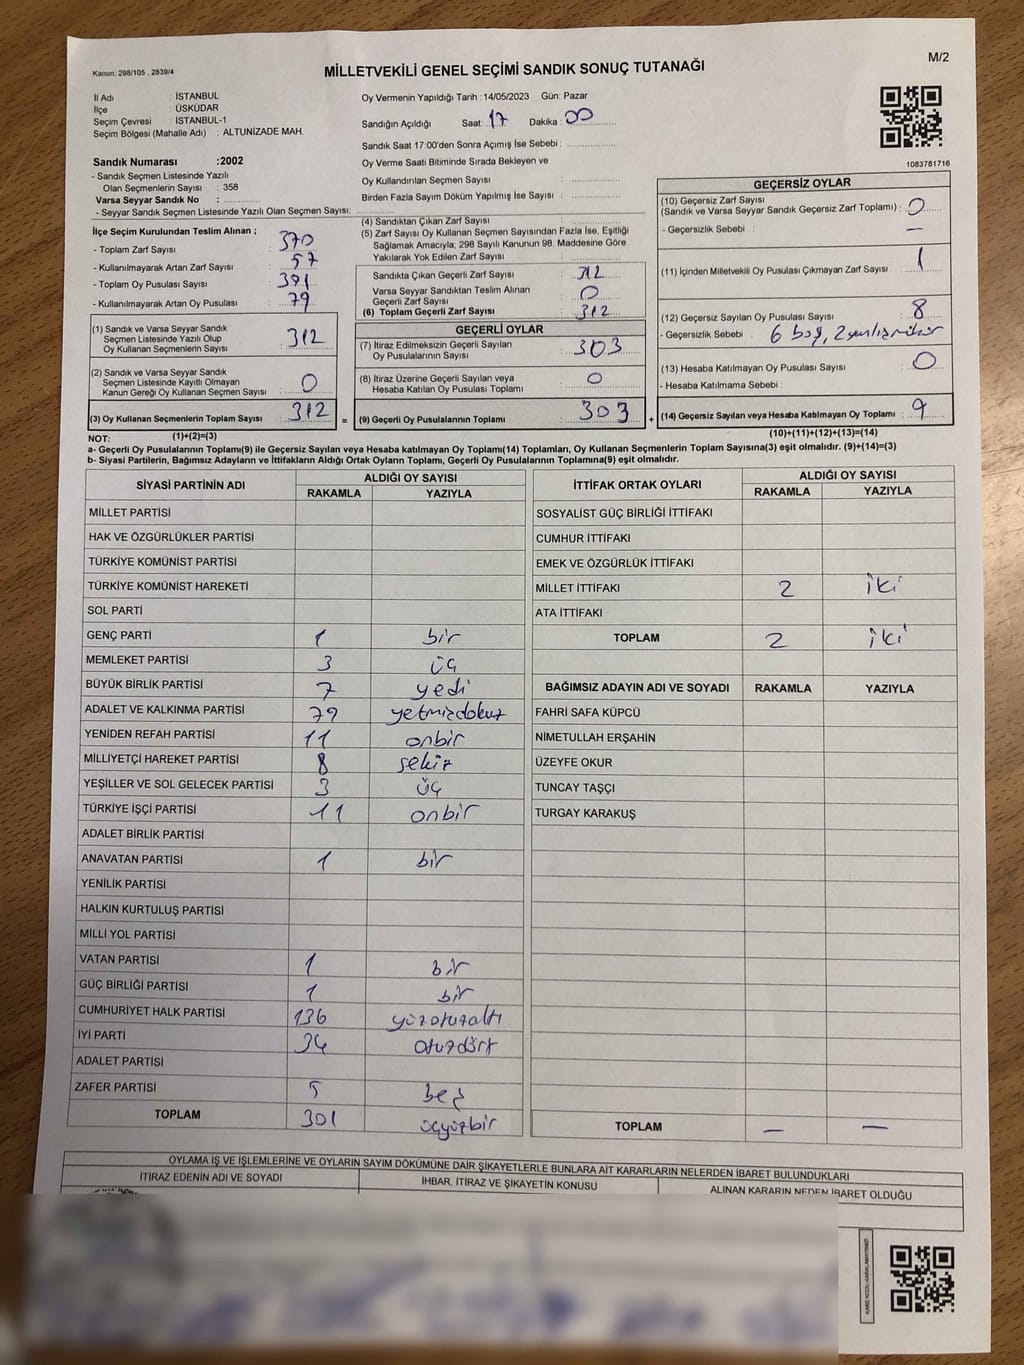 Kanun; 298/105 , 2839/4
MİLLETVEKİLİ GENEL SEÇİMİ SANDIK SONUÇ TUTANAĞI
M/2
İl Adı : İSTANBUL
İlçe : ÜSKÜDAR
Seçim Çevresi : İSTANBUL-1
Seçim Bölgesi (Mahalle Adı) : ALTUNİZADE MAH.
Sandık Numarası :2002
- Sandık Seçmen Listesinde Yazılı
Olan Seçmenlerin Sayısı : 358
Varsa Seyyar Sandık No :
- Seyyar Sandık Seçmen Listesinde Yazılı Olan Seçmen Sayısı:
Oy Vermenin Yapıldığı Tarih : 14/05/2023 Gün: Pazar
Sandığın Açıldığı Saat: 17 Dakika : 00
Sandık Saat 17:00'den Sonra Açımış İse Sebebi :
Oy Verme Saati Bitiminde Sırada Bekleyen ve
Oy Kullandırılan Seçmen Sayısı :
Birden Fazla Sayım Döküm Yapılmış İse Sayısı :
1083781716
İlçe Seçim Kurulundan Teslim Alınan ;
- Toplam Zarf Sayısı : 370
- Kullanılmayarak Artan Zarf Sayısı : 57
- Toplam Oy Pusulası Sayısı : 391
- Kullanılmayarak Artan Oy Pusulası : 79
(1) Sandık ve Varsa Seyyar Sandık
Seçmen Listesinde Yazılı Olup
Oy Kullanan Seçmenlerin Sayısı : 312
(2) Sandık ve Varsa Seyyar Sandık
Seçmen Listesinde Kayıtlı Olmayan
Kanun Gereği Oy Kullanan Seçmen Sayısı : 0
(3) Oy Kullanan Seçmenlerin Toplam Sayısı : 312 =
(1)+(2)=(3)
(4) Sandıktan Çıkan Zarf Sayısı :
(5) Zarf Sayısı Oy Kullanan Seçmen Sayısından Fazla İse, Eşitliği
Sağlamak Amacıyla; 298 Sayılı Kanunun 98. Maddesine Göre
Yakılarak Yok Edilen Zarf Sayısı :
Sandıkta Çıkan Geçerli Zarf Sayısı : 312
Varsa Seyyar Sandıktan Teslim Alınan
Geçerli Zarf Sayısı : 0
(6) Toplam Geçerli Zarf Sayısı : 312
GEÇERLİ OYLAR
(7) İtiraz Edilmeksizin Geçerli Sayılan
Oy Pusulalarının Sayısı : 303
(8) İtiraz Üzerine Geçerli Sayılan veya
Hesaba Katılan Oy Pusulası Toplamı : 0
(9) Geçerli Oy Pusulalarının Toplamı : 303 +
GEÇERSİZ OYLAR
(10) Geçersiz Zarf Sayısı
(Sandık ve Varsa Seyyar Sandık Geçersiz Zarf Toplamı) : 0
- Geçersizlik Sebebi : —
(11) İçinden Milletvekili Oy Pusulası Çıkmayan Zarf Sayısı : 1
(12) Geçersiz Sayılan Oy Pusulası Sayısı : 8
- Geçersizlik Sebebi : 6 boş, 2 yanlış mühür
(13) Hesaba Katılmayan Oy Pusulası Sayısı : 0
- Hesaba Katılmama Sebebi :
(14) Geçersiz Sayılan veya Hesaba Katılmayan Oy Toplamı : 9
(10)+(11)+(12)+(13)=(14)
NOT:
a- Geçerli Oy Pusulalarının Toplamı(9) ile Geçersiz Sayılan veya Hesaba katılmayan Oy Toplamı(14) Toplamları, Oy Kullanan Seçmenlerin Toplam Sayısına(3) eşit olmalıdır. (9)+(14)=(3)
b- Siyasi Partilerin, Bağımsız Adayların ve İttifakların Aldığı Ortak Oyların Toplamı, Geçerli Oy Pusulalarının Toplamına(9) eşit olmalıdır.
SİYASİ PARTİNİN ADI ALDIĞI OY SAYISI
RAKAMLA YAZIYLA
MİLLET PARTİSİ
HAK VE ÖZGÜRLÜKLER PARTİSİ
TÜRKİYE KOMÜNİST PARTİSİ
TÜRKİYE KOMÜNİST HAREKETİ
SOL PARTİ
GENÇ PARTİ 1 bir
MEMLEKET PARTİSİ 3 üç
BÜYÜK BİRLİK PARTİSİ 7 yedi
ADALET VE KALKINMA PARTİSİ 79 yetmişdokuz
YENİDEN REFAH PARTİSİ 11 onbir
MİLLİYETÇİ HAREKET PARTİSİ 8 sekiz
YEŞİLLER VE SOL GELECEK PARTİSİ 3 üç
TÜRKİYE İŞÇİ PARTİSİ 11 onbir
ADALET BİRLİK PARTİSİ
ANAVATAN PARTİSİ 1 bir
YENİLİK PARTİSİ
HALKIN KURTULUŞ PARTİSİ
MİLLİ YOL PARTİSİ
VATAN PARTİSİ 1 bir
GÜÇ BİRLİĞİ PARTİSİ 1 bir
CUMHURİYET HALK PARTİSİ 136 yüzotuzaltı
İYİ PARTİ 34 otuzdört
ADALET PARTİSİ
ZAFER PARTİSİ 5 beş
TOPLAM 301 üçyüzbir
İTTİFAK ORTAK OYLARI ALDIĞI OY SAYISI
RAKAMLA YAZIYLA
SOSYALİST GÜÇ BİRLİĞİ İTTİFAKI
CUMHUR İTTİFAKI
EMEK VE ÖZGÜRLÜK İTTİFAKI
MİLLET İTTİFAKI 2 iki
ATA İTTİFAKI
TOPLAM 2 iki
BAĞIMSIZ ADAYIN ADI VE SOYADI RAKAMLA YAZIYLA
FAHRİ SAFA KÜPCÜ
NİMETULLAH ERŞAHİN
ÜZEYFE OKUR
TUNCAY TAŞÇI
TURGAY KARAKUŞ
TOPLAM — —
OYLAMA İŞ VE İŞLEMLERİNE VE OYLARIN SAYIM DÖKÜMÜNE DAİR ŞİKAYETLERLE BUNLARA AİT KARARLARIN NELERDEN İBARET BULUNDUKLARI
İTİRAZ EDENİN ADI VE SOYADI İHBAR, İTİRAZ VE ŞİKAYETİN KONUSU ALINAN KARARIN NEDEN İBARET OLDUĞU